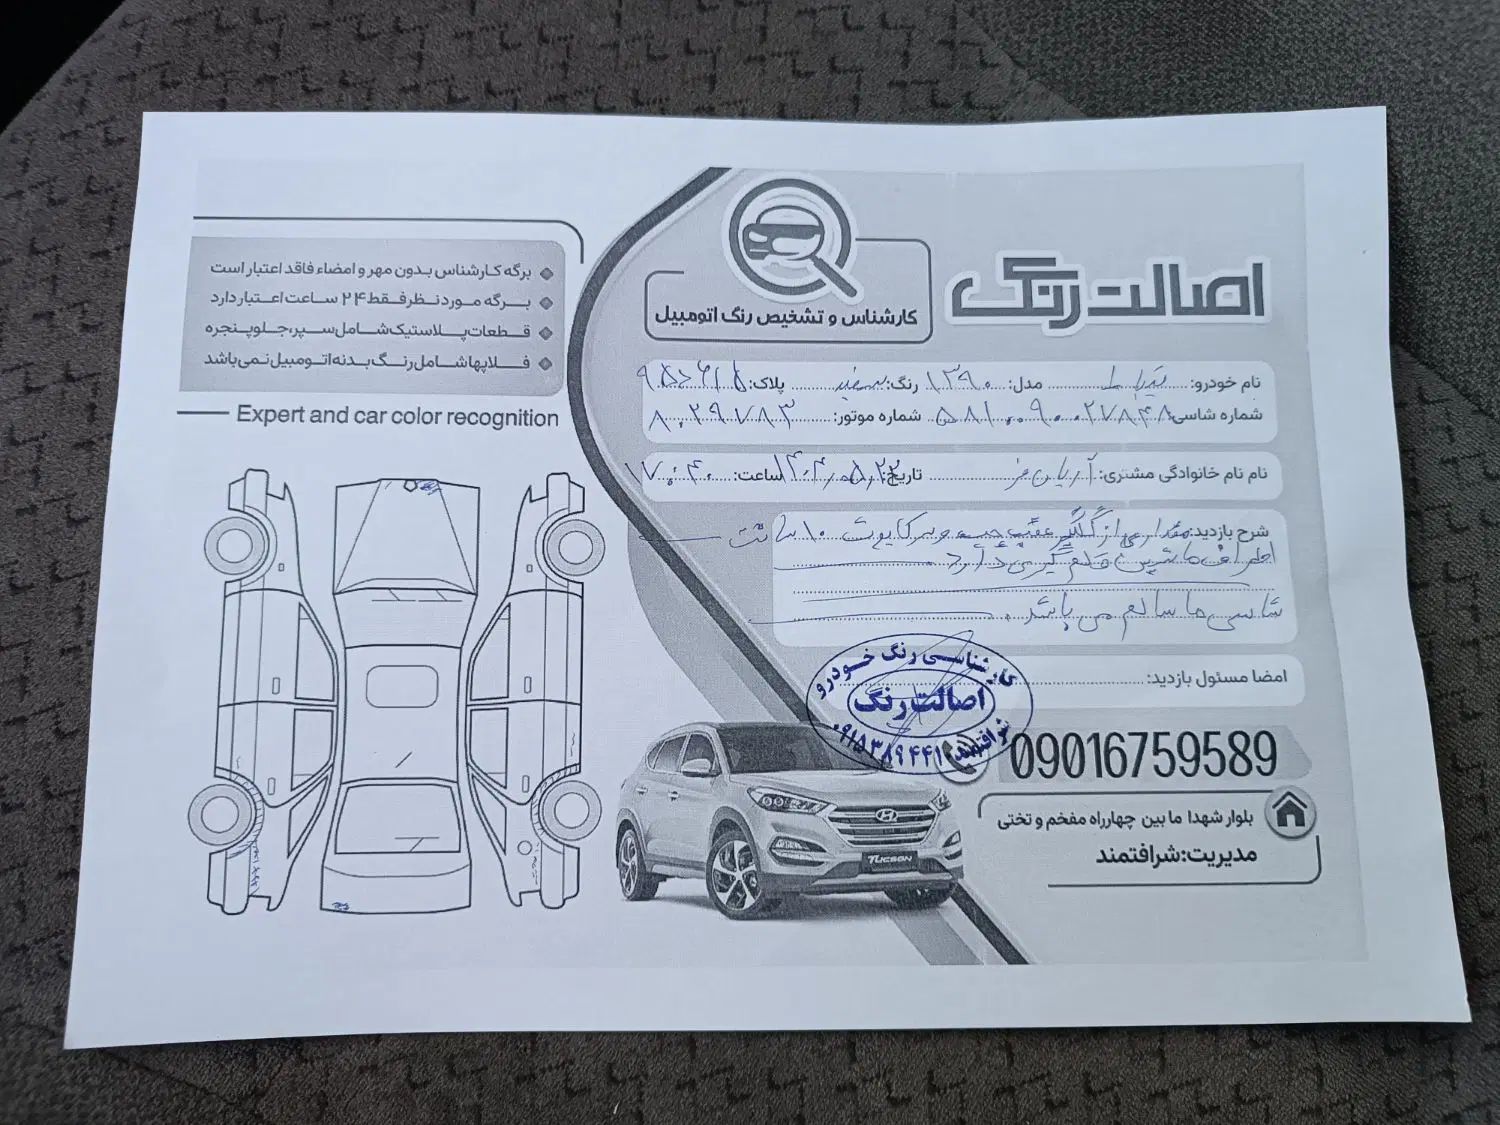 اصالت رنگ
کارشناس و تشخیص رنگ اتومبیل
نام خودرو: تیبا مدل: ۱۳۹۰ رنگ: سفید پلاک:
شماره شاسی: شماره موتور: ۸۰۲۹۷۸۳
نام نام خانوادگی مشتری: تاریخ: ساعت: ۱۷:۴۰
شرح بازدید: مقداری از گلگیر عقب چپ و سر کاپوت ۱۰ سانت
اطراف ماشین قلم گیری دارد
شاسی ها سالم می باشد.
امضا مسئول بازدید:
کارشناسی رنگ خودرو
اصالت رنگ
شرافتمند
09016759589
بلوار شهدا مابین چهارراه مفخم و تختی
مدیریت: شرافتمند
TUCSON
برگه کارشناس بدون مهر و امضاء فاقد اعتبار است
برگه مورد نظر فقط ۲۴ ساعت اعتبار دارد
قطعات پلاستیک شامل سپر، جلو پنجره
فلاپها شامل رنگ بدنه اتومبیل نمی باشد
Expert and car color recognition